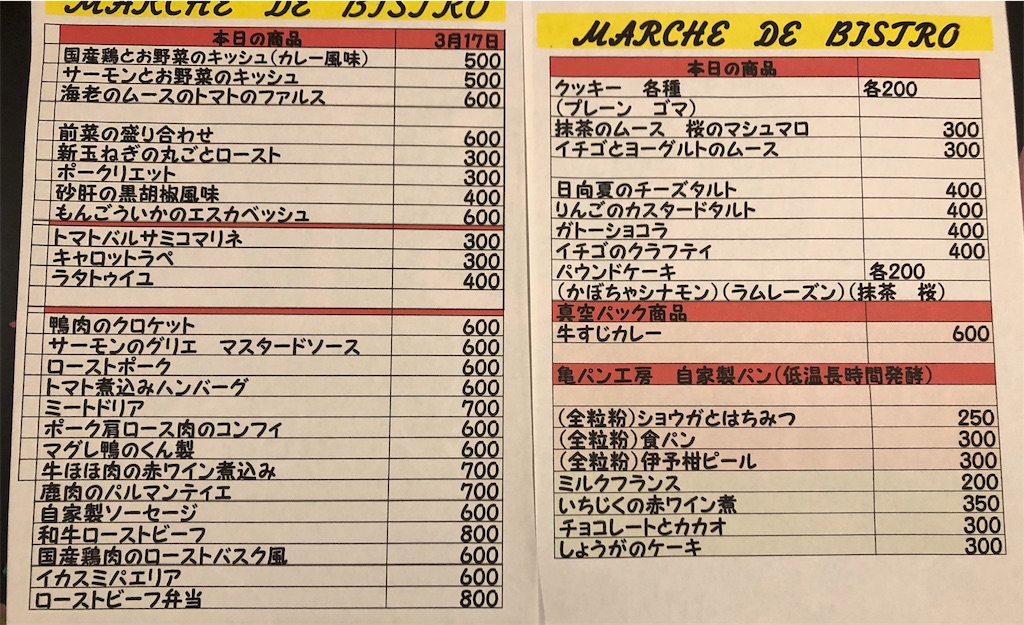 MARCHE DE BISTRO
本日の商品 3月17日
国産鶏とお野菜のキッシュ(カレー風味) 500
サーモンとお野菜のキッシュ 500
海老のムースのトマトのファルス 600
前菜の盛り合わせ 600
新玉ねぎの丸ごとロースト 300
ポークリエット 300
砂肝の黒胡椒風味 400
もんごういかのエスカベッシュ 600
トマトバルサミコマリネ 300
キャロットラペ 300
ラタトゥイユ 400
鴨肉のクロケット 600
サーモンのグリエ マスタードソース 600
ローストポーク 600
トマト煮込みハンバーグ 600
ミートドリア 700
ポーク肩ロース肉のコンフィ 600
マグレ鴨のくん製 600
牛ほほ肉の赤ワイン煮込み 700
鹿肉のパルマンティエ 700
自家製ソーセージ 600
和牛ローストビーフ 800
国産鶏肉のローストバスク風 600
イカスミパエリア 600
ローストビーフ弁当 800
MARCHE DE BISTRO
本日の商品
クッキー 各種 各200
(プレーン ゴマ)
抹茶のムース 桜のマシュマロ 300
イチゴとヨーグルトのムース 300
日向夏のチーズタルト 400
りんごのカスタードタルト 400
ガトーショコラ 400
イチゴのクラフティ 400
パウンドケーキ 各200
(かぼちゃシナモン)(ラムレーズン)(抹茶 桜)
真空パック商品
牛すじカレー 600
亀パン工房 自家製パン(低温長時間発酵)
(全粒粉)ショウガとはちみつ 250
(全粒粉)食パン 300
(全粒粉)伊予柑ピール 300
ミルクフランス 200
いちじくの赤ワイン煮 350
チョコレートとカカオ 300
しょうがのケーキ 300